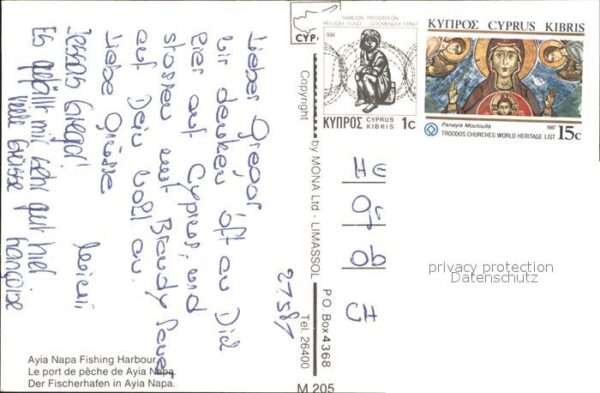 Lieber Gregor
wir denken oft an Dich
hier auf Cyprus, und
stossen mit Brandy Sauer
auf Dein Wohl an.
Liebe Grüsse
Es gefällt mir sehr gut hier
viele Grüsse
françoise
27.5.87
HE
Or
Ob
CH
Copyright by MONA Ltd - LIMASSOL
P O. Box 4368
Tel. 26400
ΚΥΠΡΟΣ
CYPRUS
KIBRIS
1c
ΚΥΠΡΟΣ CYPRUS KIBRIS
Panayia Moutoulla
1987
TROODOS CHURCHES WORLD HERITAGE LIST
15c
privacy protection
Datenschutz
Ayia Napa Fishing Harbour.
Le port de pêche de Ayia Napa.
Der Fischerhafen in Ayia Napa.
M 205